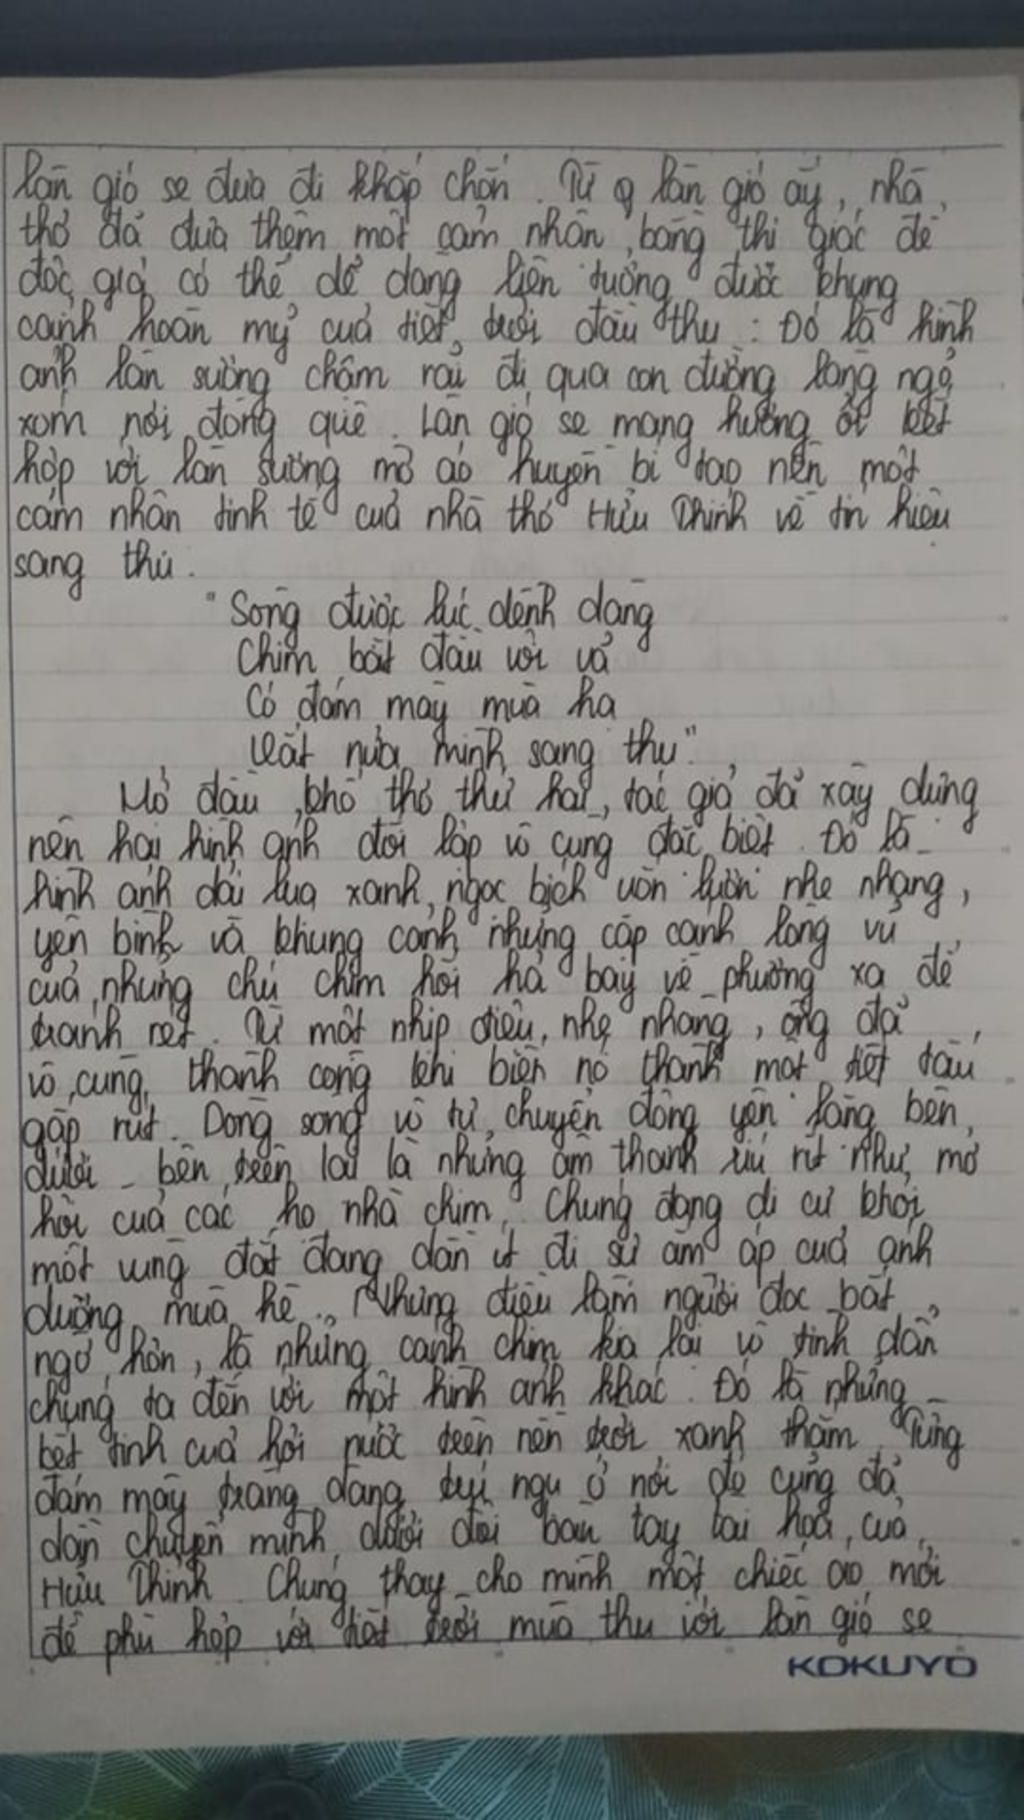 làn gió se đưa đi khắp chốn. Từ làn gió ấy, nhà
thơ đã đưa thêm một cảm nhận bằng thị giác để
độc giả có thể dễ dàng liên tưởng được khung
cảnh hoàn mỹ của tiết trời đầu thu: Đó là hình
ảnh làn sương chậm rãi đi qua con đường làng ngõ
xóm nơi đồng quê. Làn gió se mang hương ổi kết
hợp với làn sương mờ ảo huyền bí tạo nên một
cảm nhận tinh tế của nhà thơ Hữu Thỉnh về tín hiệu
sang thu.
"Sông được lúc dềnh dàng
Chim bắt đầu vội vã
Có đám mây mùa hạ
Vắt nửa mình sang thu".
Mở đầu khổ thơ thứ hai, tác giả đã xây dựng
nên hai hình ảnh đối lập vô cùng đặc biệt. Đó là
hình ảnh dải lụa xanh ngọc bích uốn lượn nhẹ nhàng,
yên bình và khung cảnh những cặp cánh lông vũ
của những chú chim hối hả bay về phương xa để
tránh rét. Từ một nhịp điệu nhẹ nhàng, ông đã
vô cùng thành công khi biến nó thành một tiết tấu
gấp rút. Dòng sông vô tư chuyển động yên lặng bên
dưới - bên trên lại là những âm thanh ríu rít như mở
hội của các họ nhà chim. Chúng đang di cư khỏi
một vùng đất đang dần ít đi sự ấm áp của ánh
dương mùa hè. Nhưng điều làm người đọc bất
ngờ hơn, là những cánh chim kia lại vô tình dẫn
chúng ta đến với một hình ảnh khác. Đó là những
kết tinh của hơi nước trên nền trời xanh thẳm. Từng
đám mây trắng đang trú ngụ ở nơi đó cũng đã
dần chuyển mình dưới đôi bàn tay tài hoa của
Hữu Thỉnh. Chúng thay cho mình một chiếc áo mới
để phù hợp với tiết trời mùa thu với làn gió se
KOKUYO